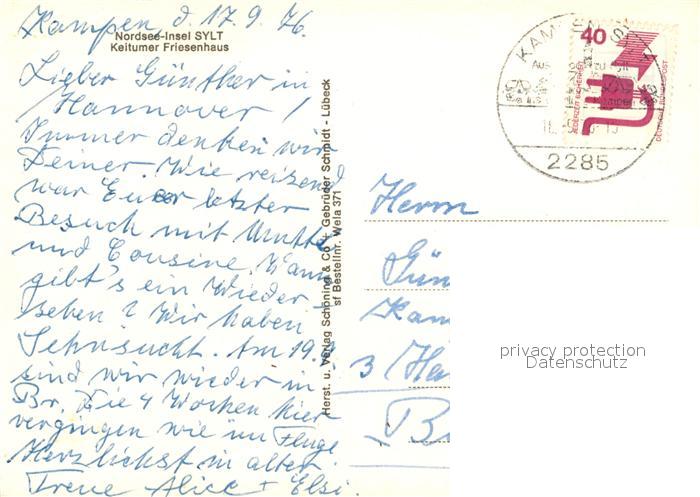 Kampen d. 17.9.76.
Nordsee-Insel SYLT
Keitumer Friesenhaus
Lieber Günther in
Hannover!
Immer denken wir
Deiner. Wie reizend
war Euer letzter
Besuch mit Mutter
und Cousine. Wann
gibt's ein Wieder-
sehen? Wir haben
Sehnsucht. Am 19.
sind wir wieder in
Br. Die 4 Wochen hier
vergingen wie im Fluge
Herzlichst in alter
Treue Alice + Elsi.
Herst. u. Verlag Schöning & Co + Gebrüder Schmidt - Lübeck
sf Bestellnr. Wela 371
KAMPEN SYLT
2285
40
JEDERZEIT SICHERHEIT
DEUTSCHE BUNDESPOST
Herrn
Gün
Kam
3 Ha
privacy protection
Datenschutz